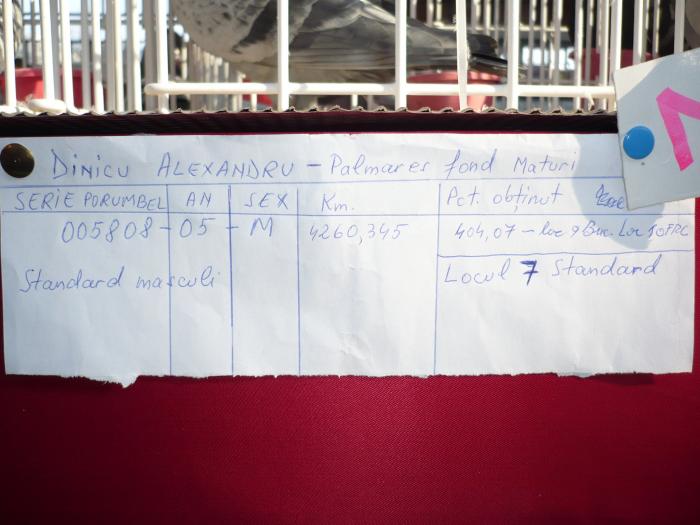 DINICU ALEXANDRU - Palmares fond Maturi
SERIE PORUMBEL AN SEX Km. Pct. obținut
005808 - 05 - M 4260,345 404,07 - loc 9 Buc. Loc 10 FRC
Standard masculi Locul 7 Standard